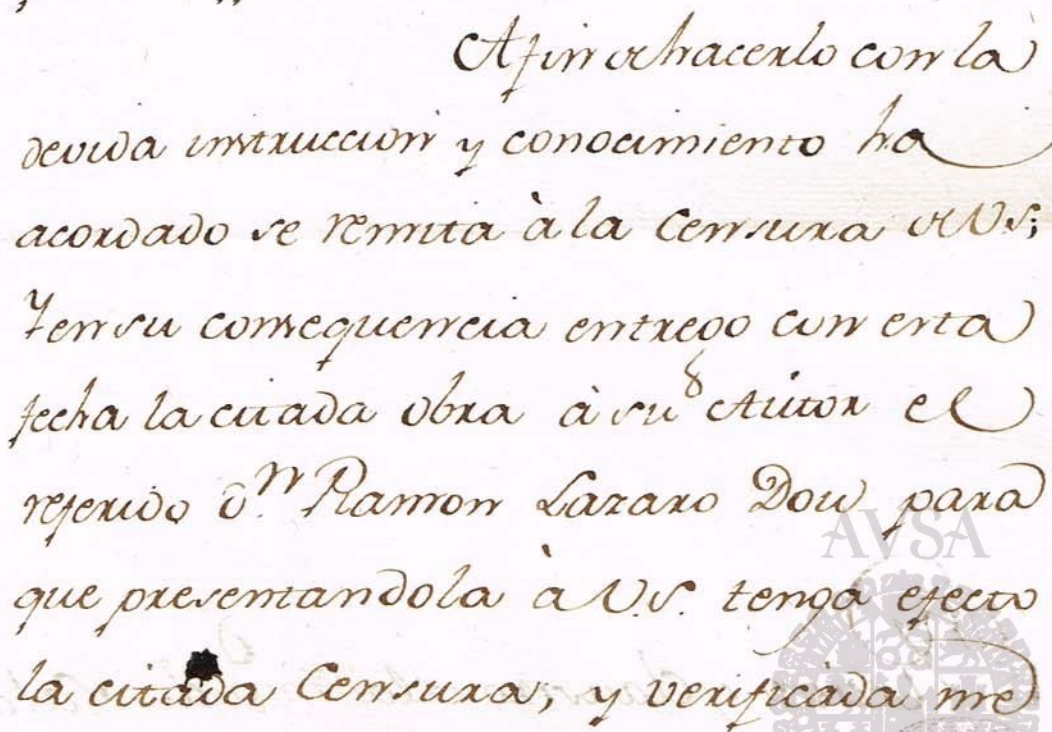 Afin de hacerlo con la
devida instruccion y conocimiento ha
acordado se remita à la Censura de VS;
Y en su consequencia entrego con esta
fecha la citada obra à su Autor el
referido Dn. Ramon Lazaro Dou para
AVSA
que presentandola à VS. tenga efecto
la citada Censura; y verificada me